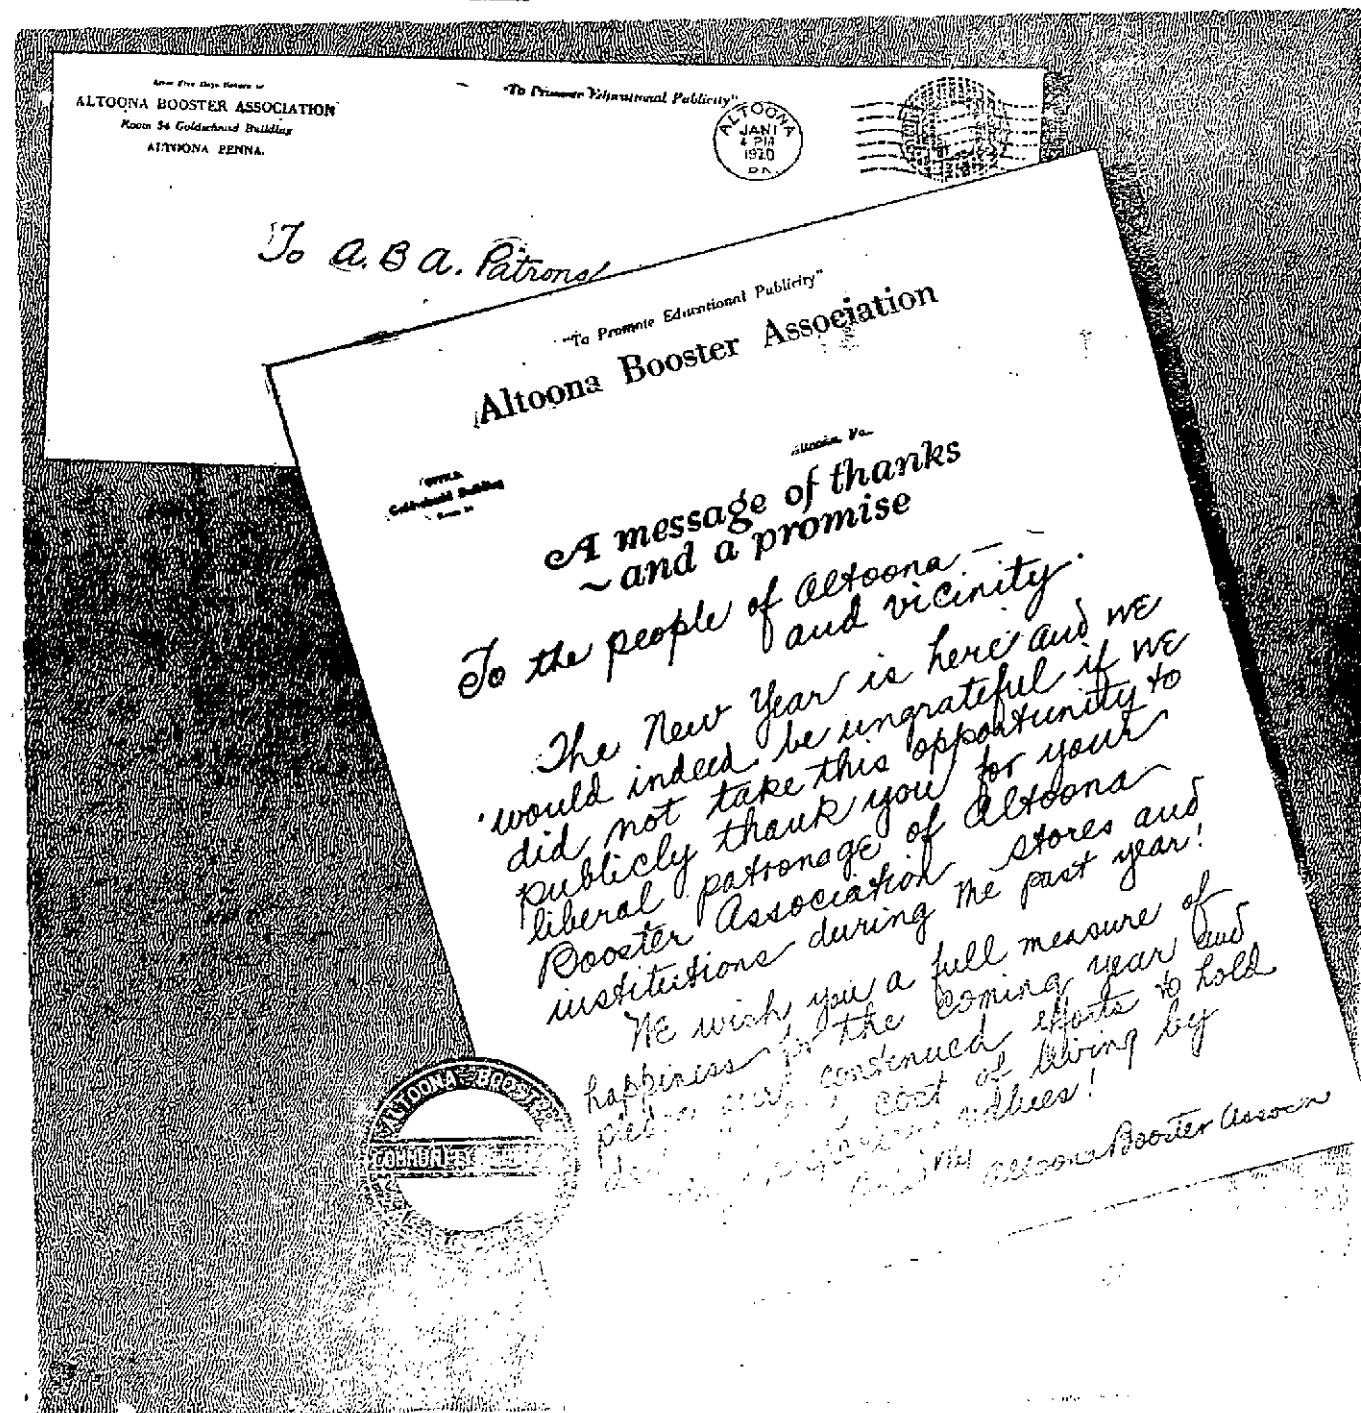 After Five Days Return to
ALTOONA BOOSTER ASSOCIATION
Room 54 Goldschmid Building
ALTOONA PENNA.
"To Promote Educational Publicity"
ALTOONA
JAN 1
4 PM
1920
PA.
To A.B.A. Patrons
"To Promote Educational Publicity"
Altoona Booster Association
Altoona, Pa.
OFFICE
Goldschmid Building
Room 54
A message of thanks
~and a promise
To the people of Altoona — —
and vicinity.
The New Year is here and we
would indeed be ungrateful if we
did not take this opportunity to
publicly thank you for your
liberal patronage of Altoona
Booster Association stores and
institutions during the past year!
We wish you a full measure of
happiness for the coming year and
our continued efforts to hold
cost of living by
values!
Altoona Booster Assocn
ALTOONA BOOSTER